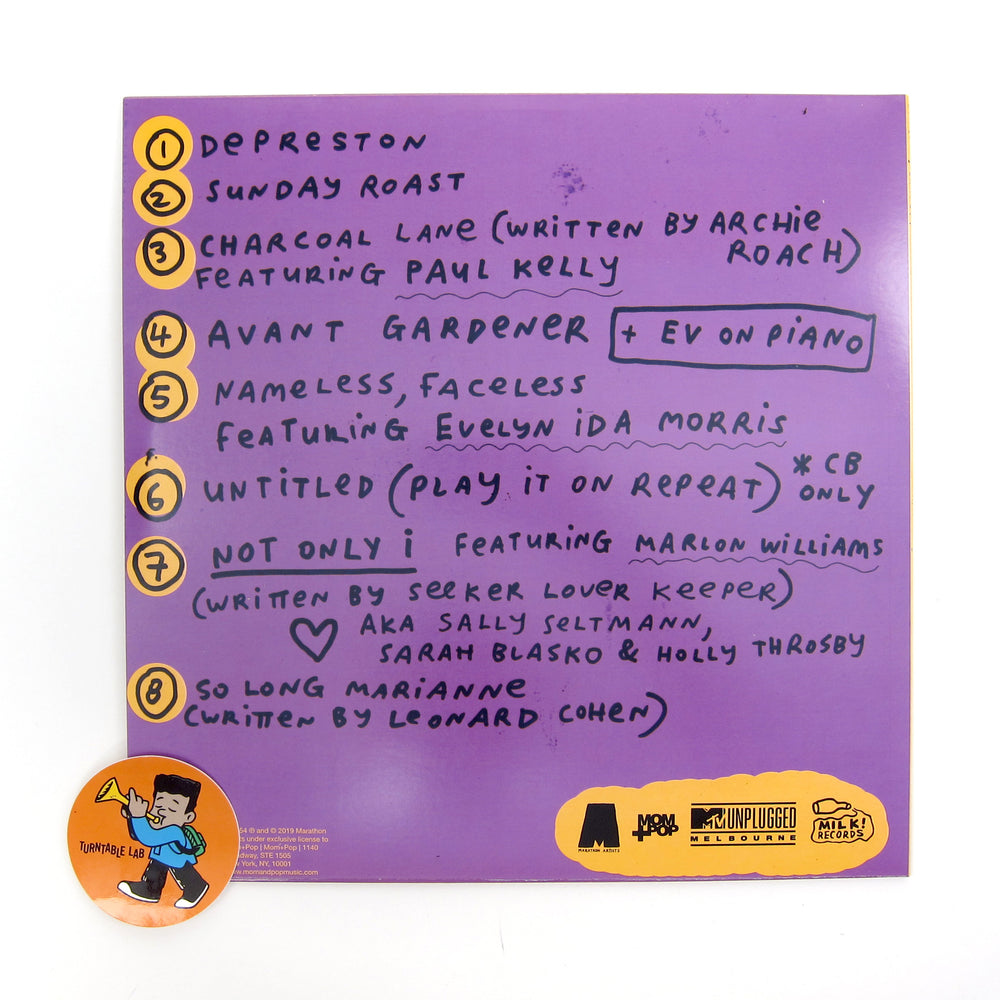 1 DEPRESTON
2 SUNDAY ROAST
3 CHARCOAL LANE (WRITTEN BY ARCHIE ROACH)
FEATURING PAUL KELLY
4 AVANT GARDENER + EV ON PIANO
5 NAMELESS, FACELESS
FEATURING EVELYN IDA MORRIS
6 UNTITLED (PLAY IT ON REPEAT) * CB ONLY
7 NOT ONLY I FEATURING MARLON WILLIAMS
(WRITTEN BY SEEKER LOVER KEEPER)
AKA SALLY SELTMANN,
SARAH BLASKO & HOLLY THROSBY
8 SO LONG MARIANNE
(WRITTEN BY LEONARD COHEN)
TURNTABLE LAB
54 ℗ and © 2019 Marathon
under exclusive license to
+Pop | Mom+Pop | 1140
STE 1505
York, NY, 10001
www.momandpopmusic.com
MARATHON ARTISTS
MOM+POP
MTV UNPLUGGED
MELBOURNE
MILK!
RECORDS